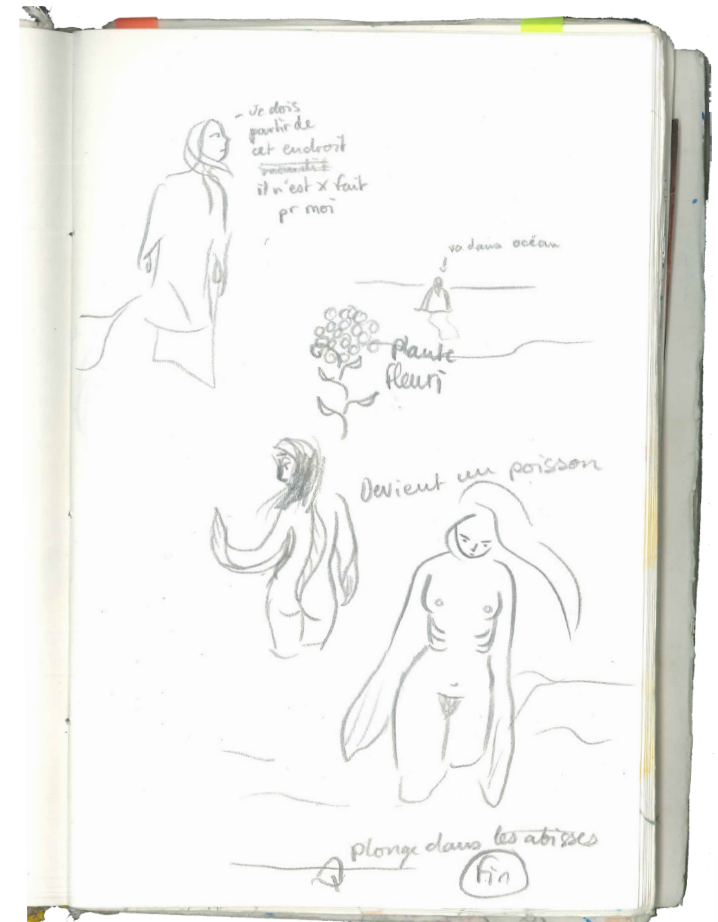 - Je dois
partir de
cet endroit
il n'est x fait
pr moi
va dans océan
plante
fleuri
Devient un poisson
plonge dans les abisses
Fin